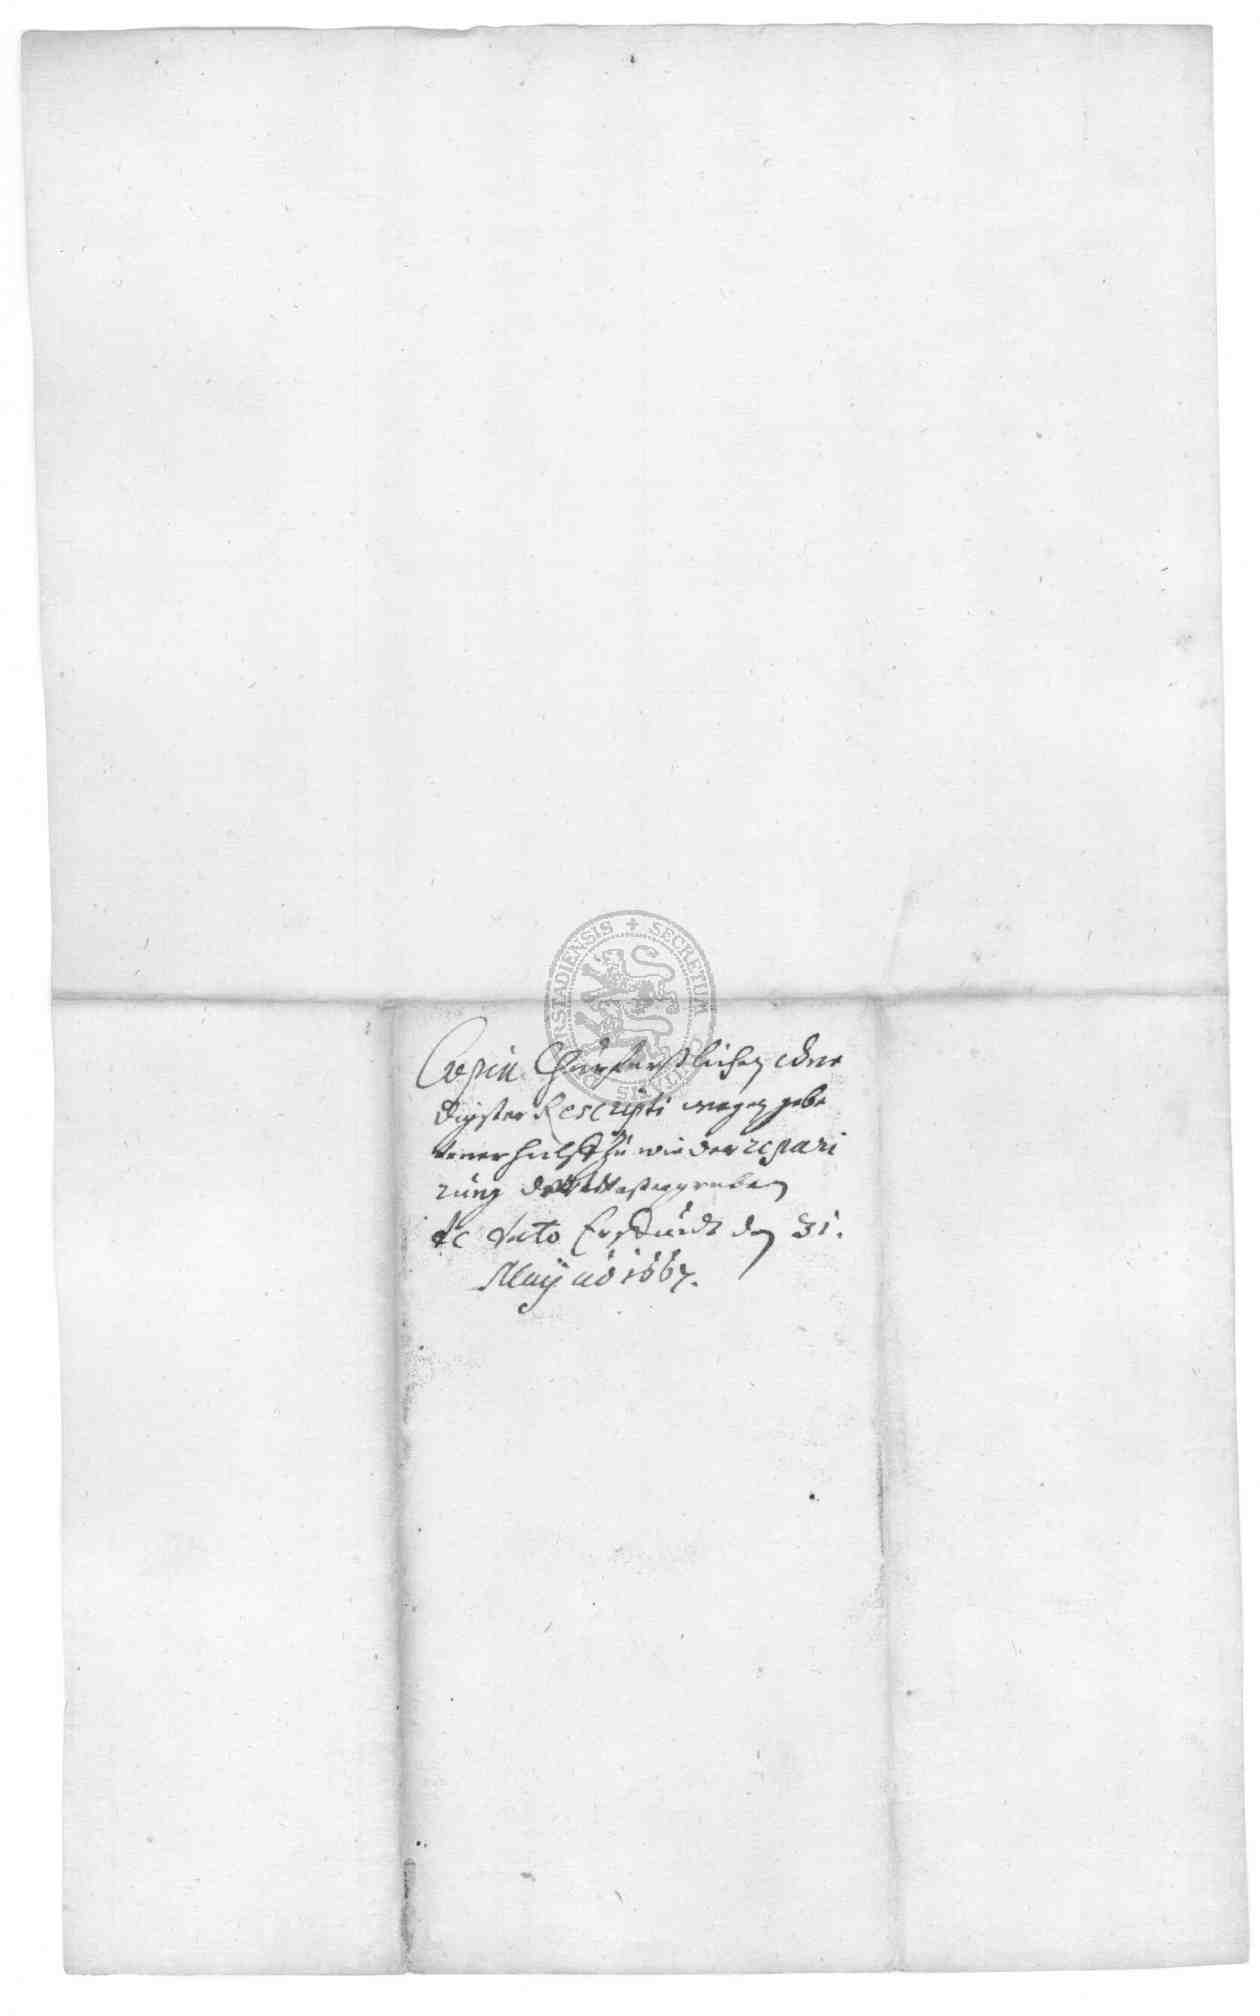 SECRETUM CIVITATIS RSTADIENSIS
Copia Churfürstlichen Gnä
digster Rescripti wegen gebe
tener hülff zu wieder repari
rung des Wassergraben
de dato Erffurdt den 31.
Maij aõ 1667.